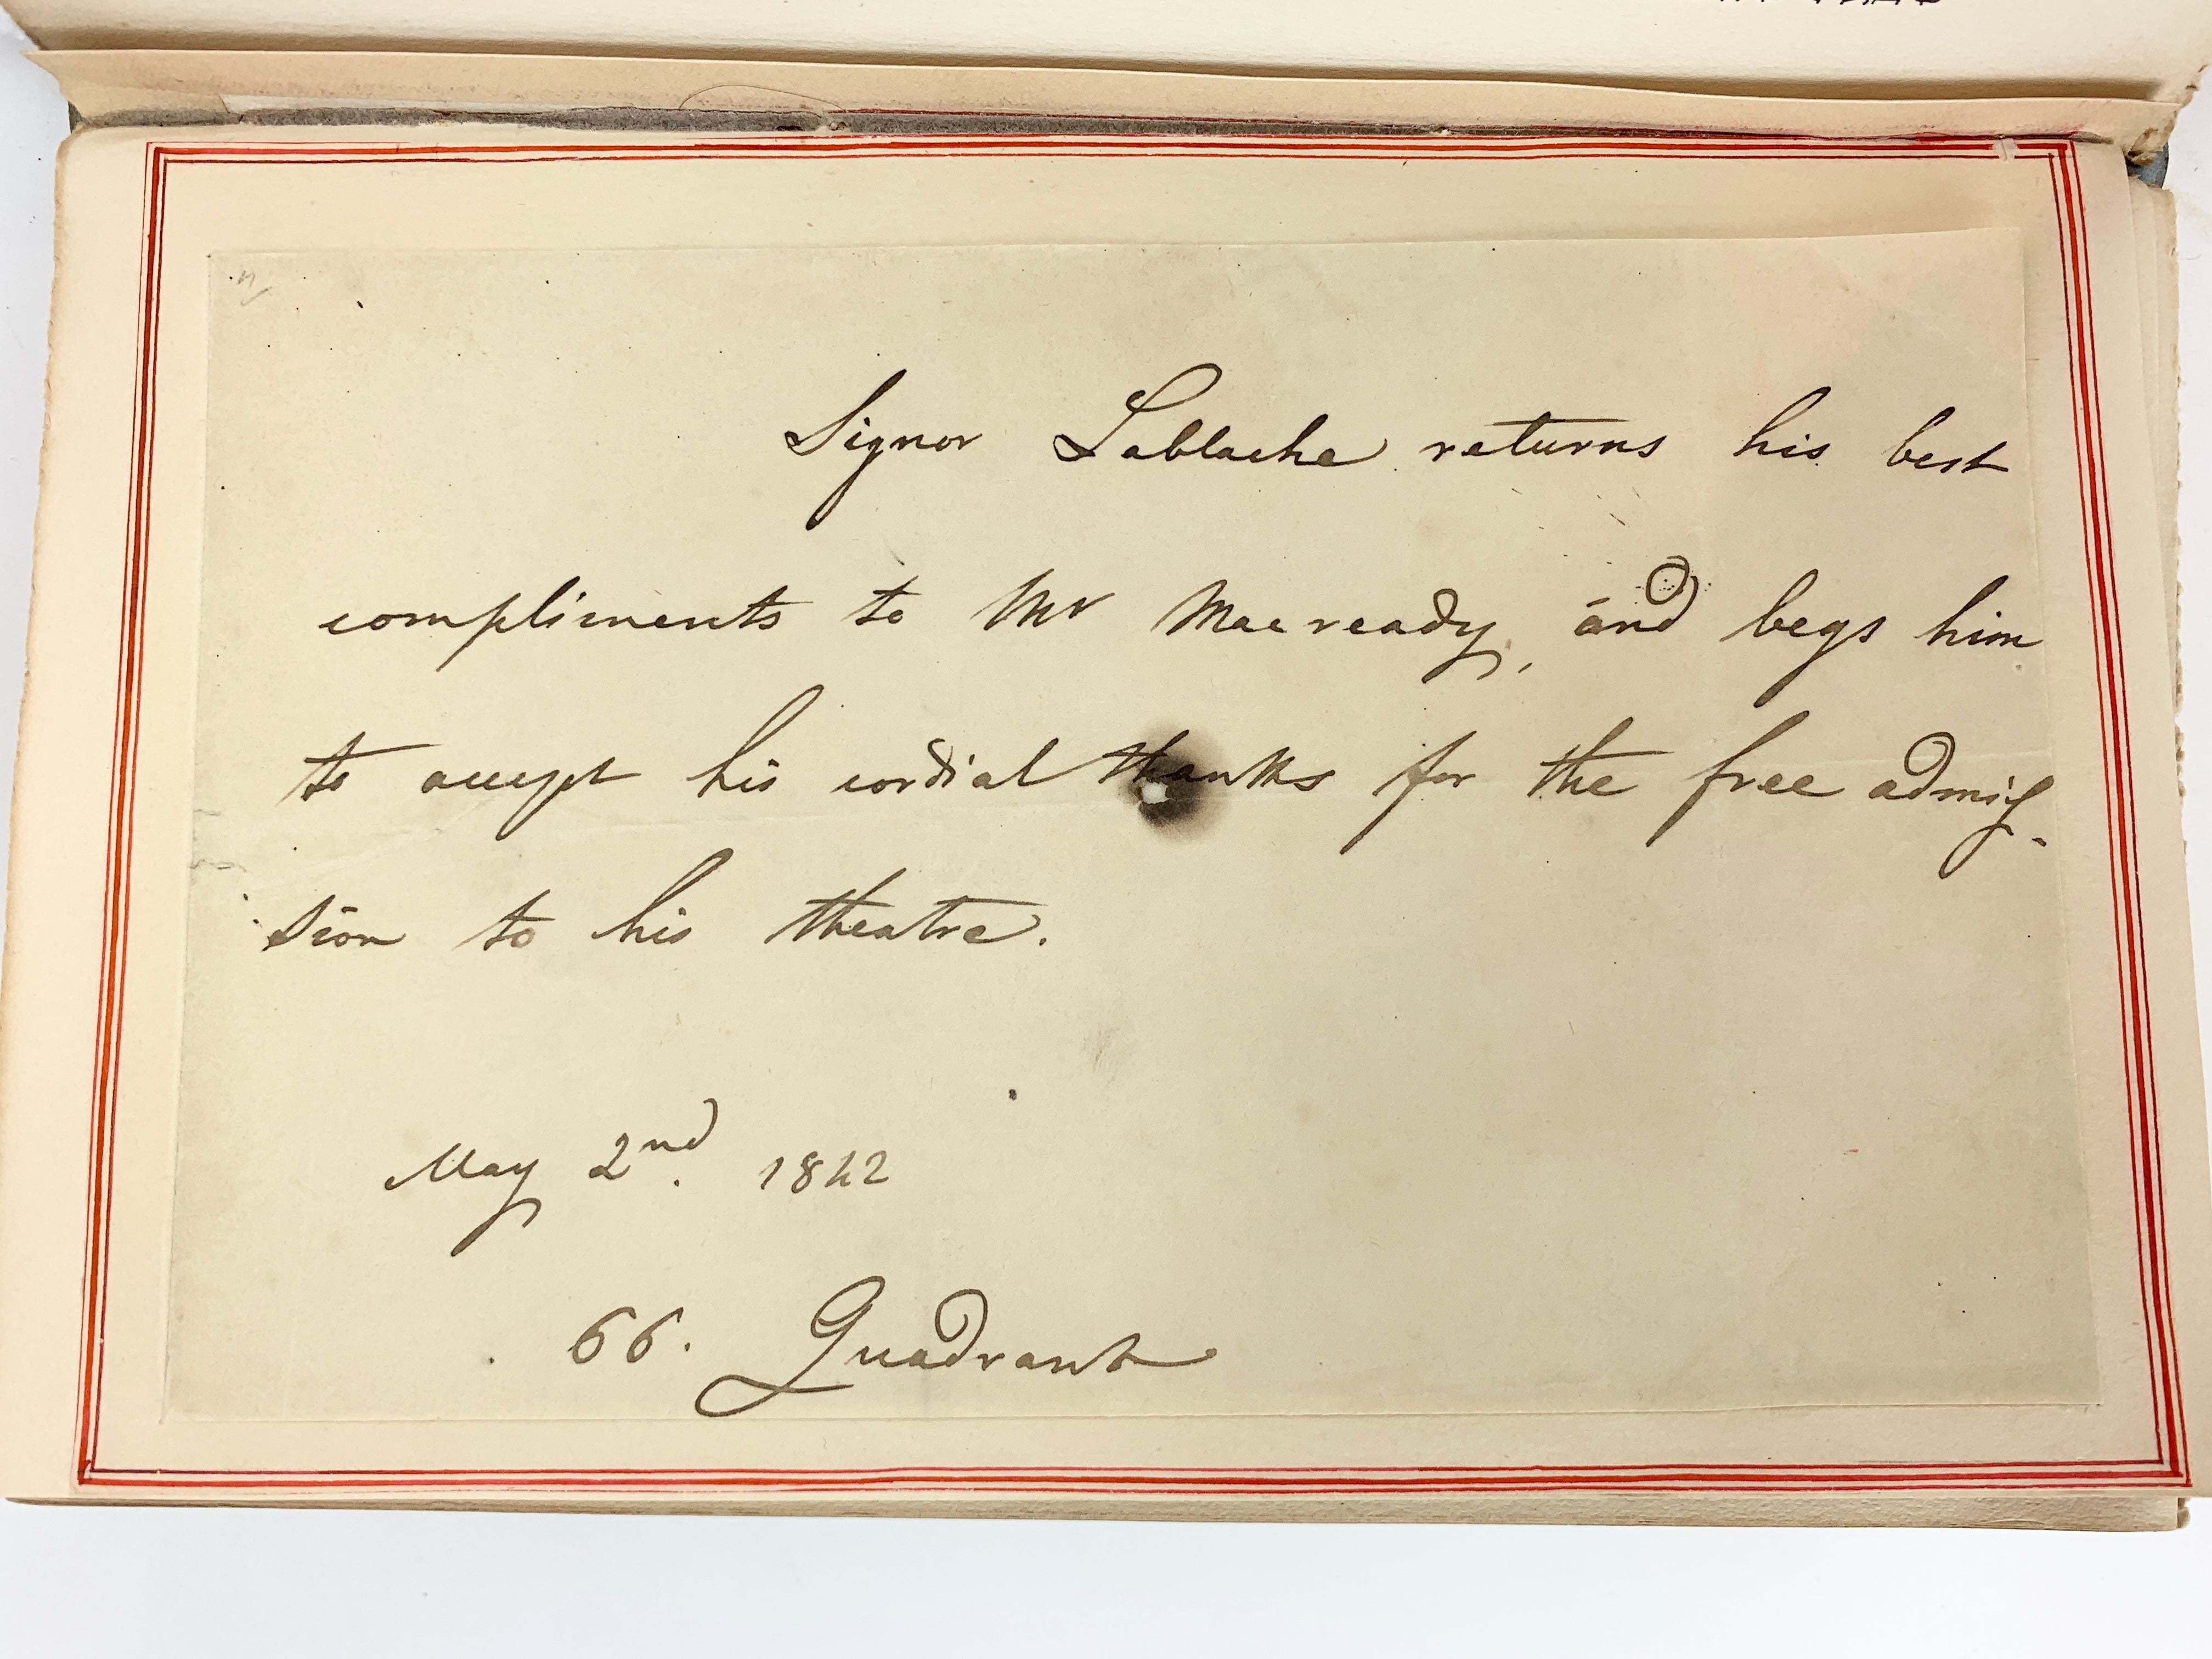 Signor Lablache returns his best
compliments to Mr Macready, and begs him
to accept his cordial thanks for the free admis-
sion to his theatre.
May 2nd. 1842
66. Quadrant